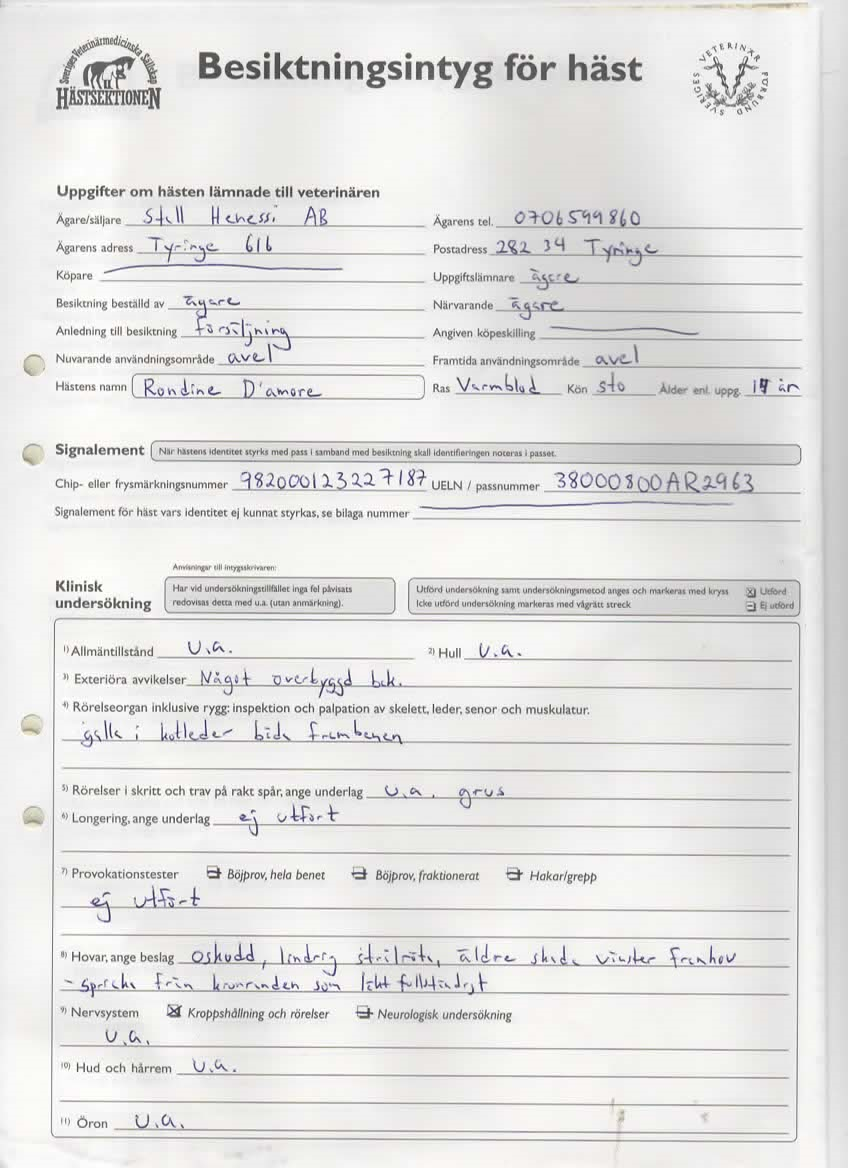 Sveriges Veterinärmedicinska Sällskap
HÄSTSEKTIONEN
Besiktningsintyg för häst
SVERIGES VETERINÄR FÖRBUND
Uppgifter om hästen lämnade till veterinären
Ägare/säljare Stall Henessi AB Ägarens tel. 0706599860
Ägarens adress Tyringe 616 Postadress 282 34 Tyringe
Köpare Uppgiftslämnare ägare
Besiktning beställd av ägare Närvarande ägare
Anledning till besiktning försäljning Angiven köpeskilling
Nuvarande användningsområde avel Framtida användningsområde avel
Hästens namn Rondine D'amore Ras Varmblod Kön sto Ålder enl. uppg. år
Signalement När hästens identitet styrks med pass i samband med besiktning skall identifieringen noteras i passet.
Chip- eller frysmärkningsnummer 982000123227187 UELN / passnummer 38000800AR2963
Signalement för häst vars identitet ej kunnat styrkas, se bilaga nummer
Anvisningar till intygsskrivaren:
Klinisk undersökning
Har vid undersökningstillfället inga fel påvisats
redovisas detta med u.a. (utan anmärkning).
Utförd undersökning samt undersökningsmetod anges och markeras med kryss Utförd
Icke utförd undersökning markeras med vågrätt streck Ej utförd
1) Allmäntillstånd u.a. 2) Hull u.a.
3) Exteriöra avvikelser Något överbyggd bak.
4) Rörelseorgan inklusive rygg: inspektion och palpation av skelett, leder, senor och muskulatur.
galla i kotleder båda frambenen
5) Rörelser i skritt och trav på rakt spår, ange underlag u.a. grus
6) Longering, ange underlag ej utfört
7) Provokationstester Böjprov, hela benet Böjprov, fraktionerat Hakar/grepp
ej utfört
8) Hovar, ange beslag oskodd, lindrig strålröta, äldre skada vänster framhov
- spricka från kronranden som läkt fullständigt
9) Nervsystem Kroppshållning och rörelser Neurologisk undersökning
u.a.
10) Hud och hårrem u.a.
11) Öron u.a.